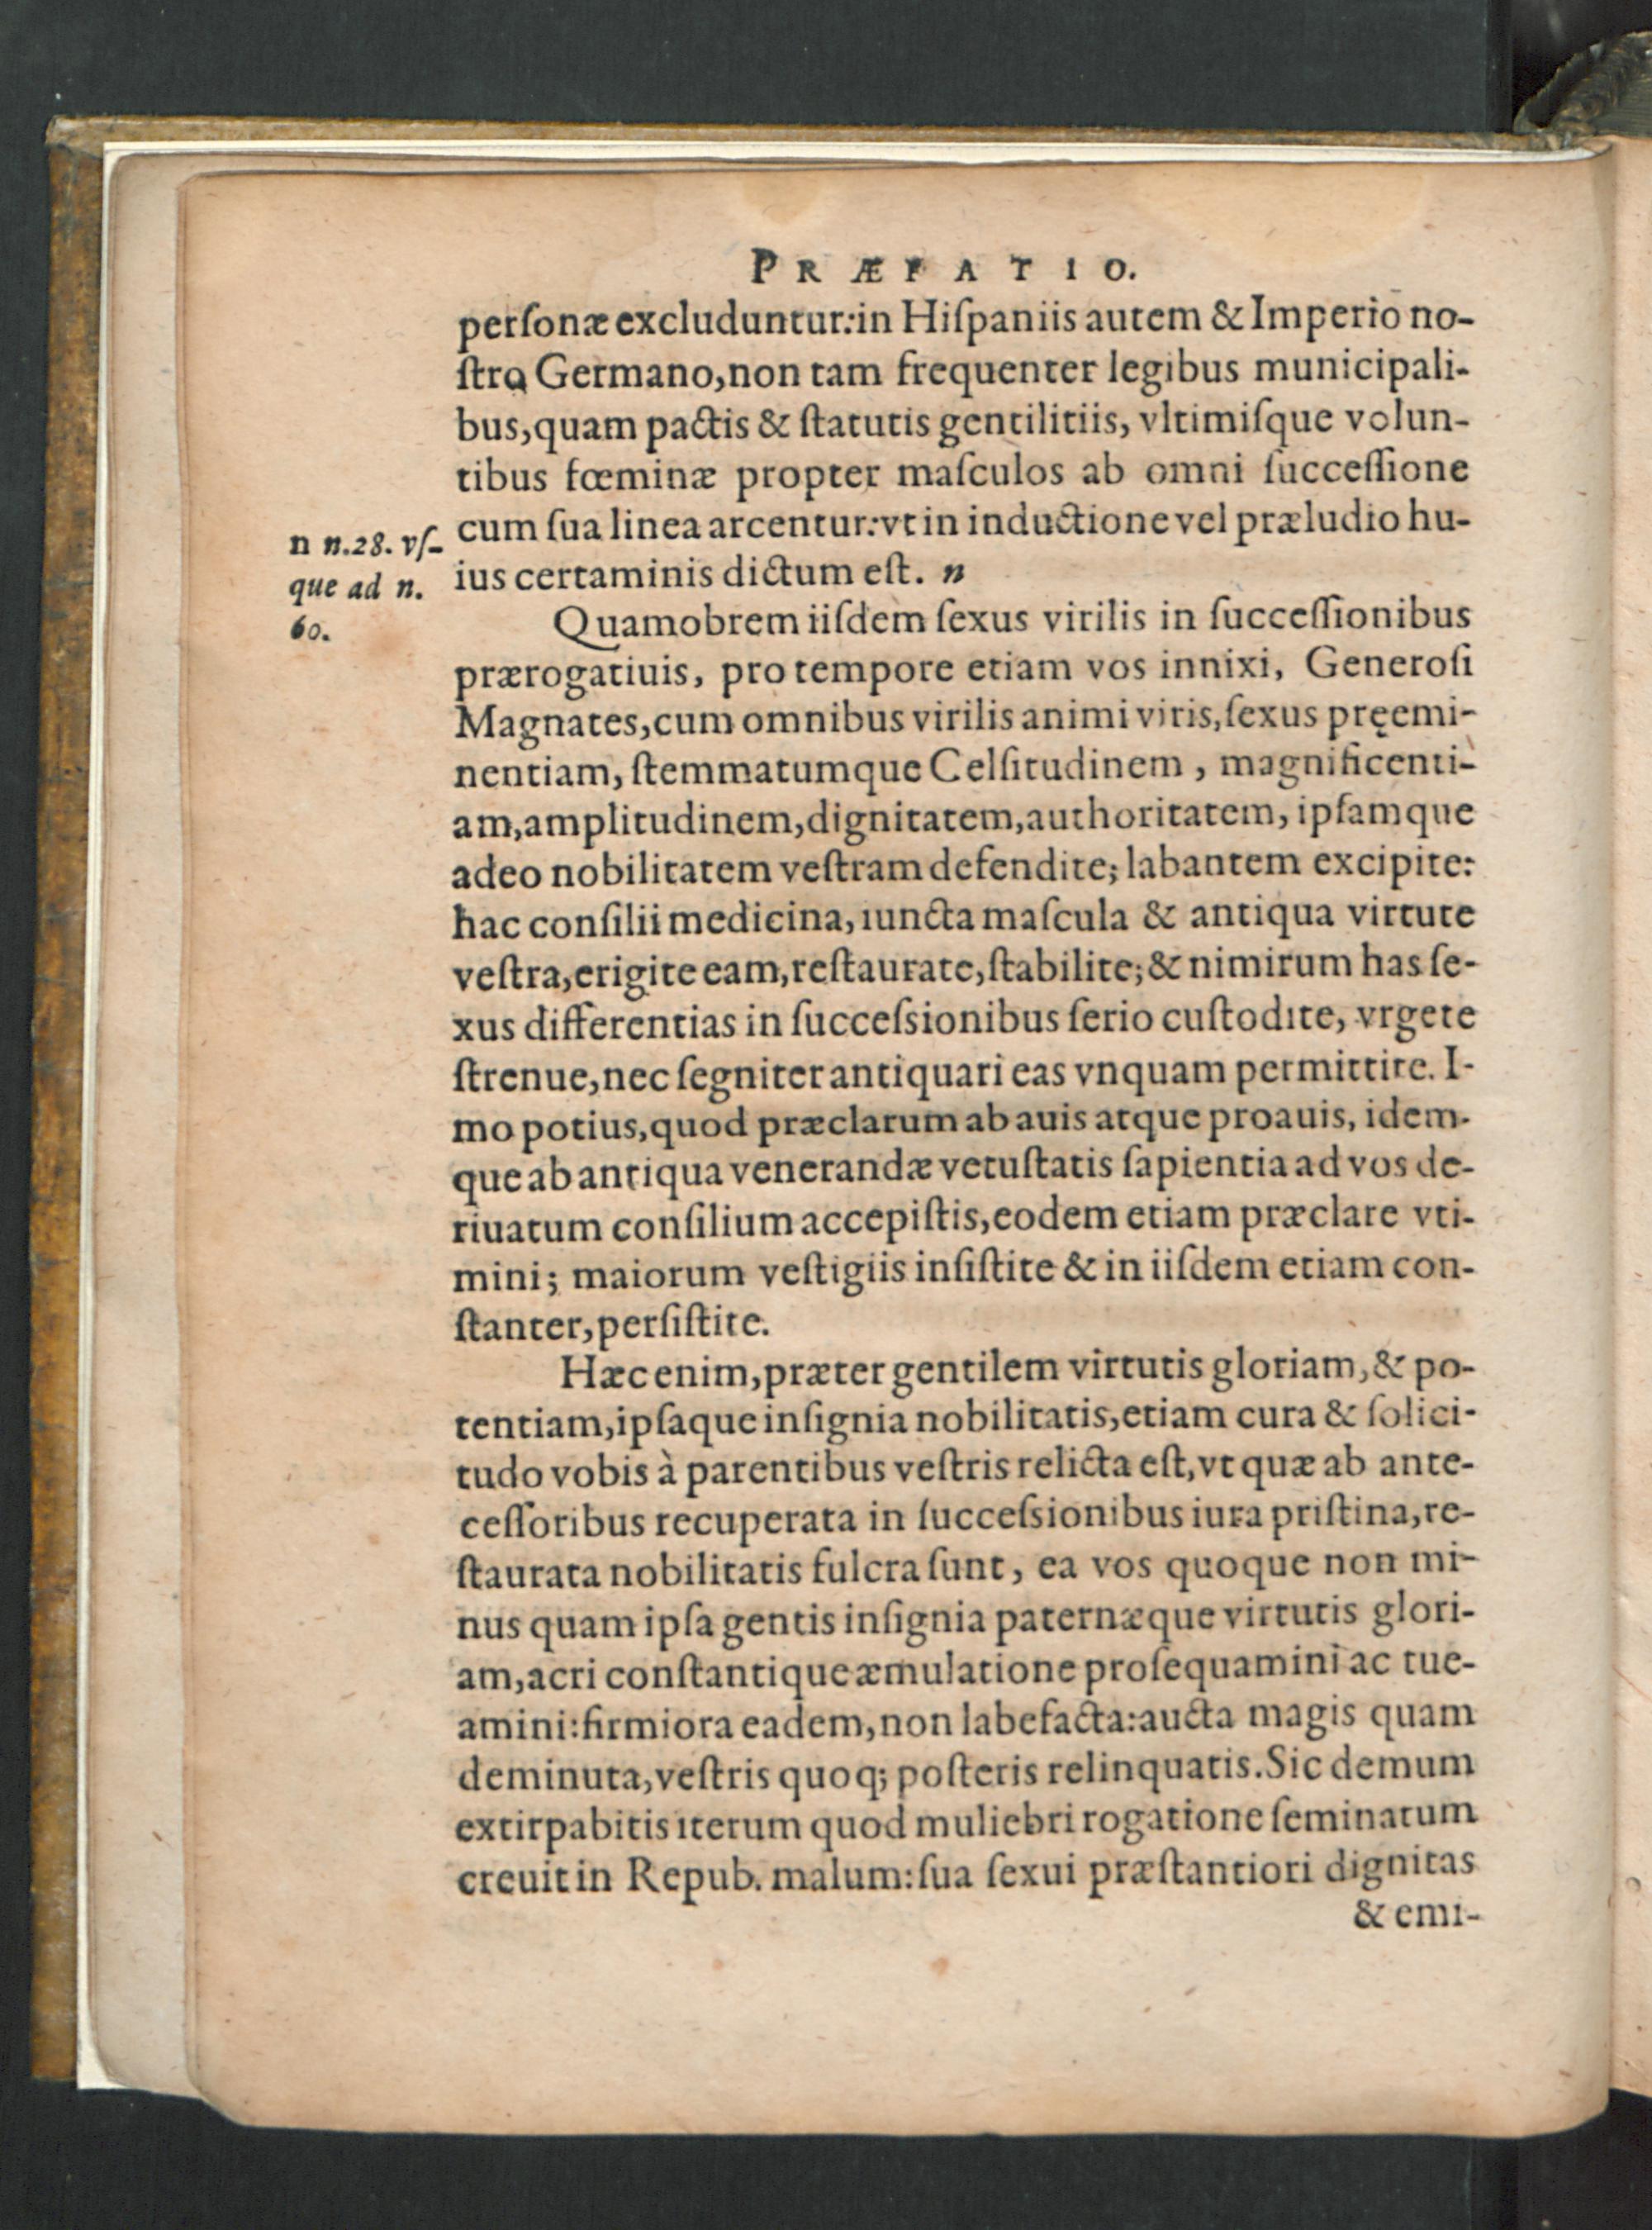 PRÆFATIO.
perſonæ excluduntur: in Hiſpaniis autem & Imperio no-
ſtro Germano, non tam frequenter legibus municipali-
bus, quam pactis & ſtatutis gentilitiis, vltimiſque volun-
tibus fœminæ propter maſculos ab omni ſucceſſione
cum ſua linea arcentur: vt in inductione vel præludio hu-
n n. 28. vſ-
que ad n.
60.
ius certaminis dictum eſt. n
Quamobrem iiſdem ſexus virilis in ſucceſſionibus
prærogatiuis, pro tempore etiam vos innixi, Generoſi
Magnates, cum omnibus virilis animi viris, ſexus pręemi-
nentiam, ſtemmatumque Celſitudinem, magnificenti-
am, amplitudinem, dignitatem, authoritatem, ipſamque
adeo nobilitatem veſtram defendite; labantem excipite:
hac conſilii medicina, iuncta maſcula & antiqua virtute
veſtra, erigite eam, reſtaurate, ſtabilite; & nimirum has ſe-
xus differentias in ſucceſsionibus ſerio cuſtodite, vrgete
ſtrenue, nec ſegniter antiquari eas vnquam permittite. I-
mo potius, quod præclarum ab auis atque proauis, idem-
que ab antiqua venerandæ vetuſtatis ſapientia ad vos de-
riuatum conſilium accepiſtis, eodem etiam præclare vti-
mini; maiorum veſtigiis inſiſtite & in iiſdem etiam con-
ſtanter, perſiſtite.
Hæc enim, præter gentilem virtutis gloriam, & po-
tentiam, ipſaque inſignia nobilitatis, etiam cura & ſolici-
tudo vobis à parentibus veſtris relicta eſt, vt quæ ab ante-
ceſſoribus recuperata in ſucceſsionibus iura priſtina, re-
ſtaurata nobilitatis fulcra ſunt, ea vos quoque non mi-
nus quam ipſa gentis inſignia paternæque virtutis glori-
am, acri conſtantique æmulatione proſequamini ac tue-
amini: firmiora eadem, non labefacta: aucta magis quam
deminuta, veſtris quoq; poſteris relinquatis. Sic demum
extirpabitis iterum quod muliebri rogatione ſeminatum
creuit in Repub. malum: ſua ſexui præſtantiori dignitas
& emi-